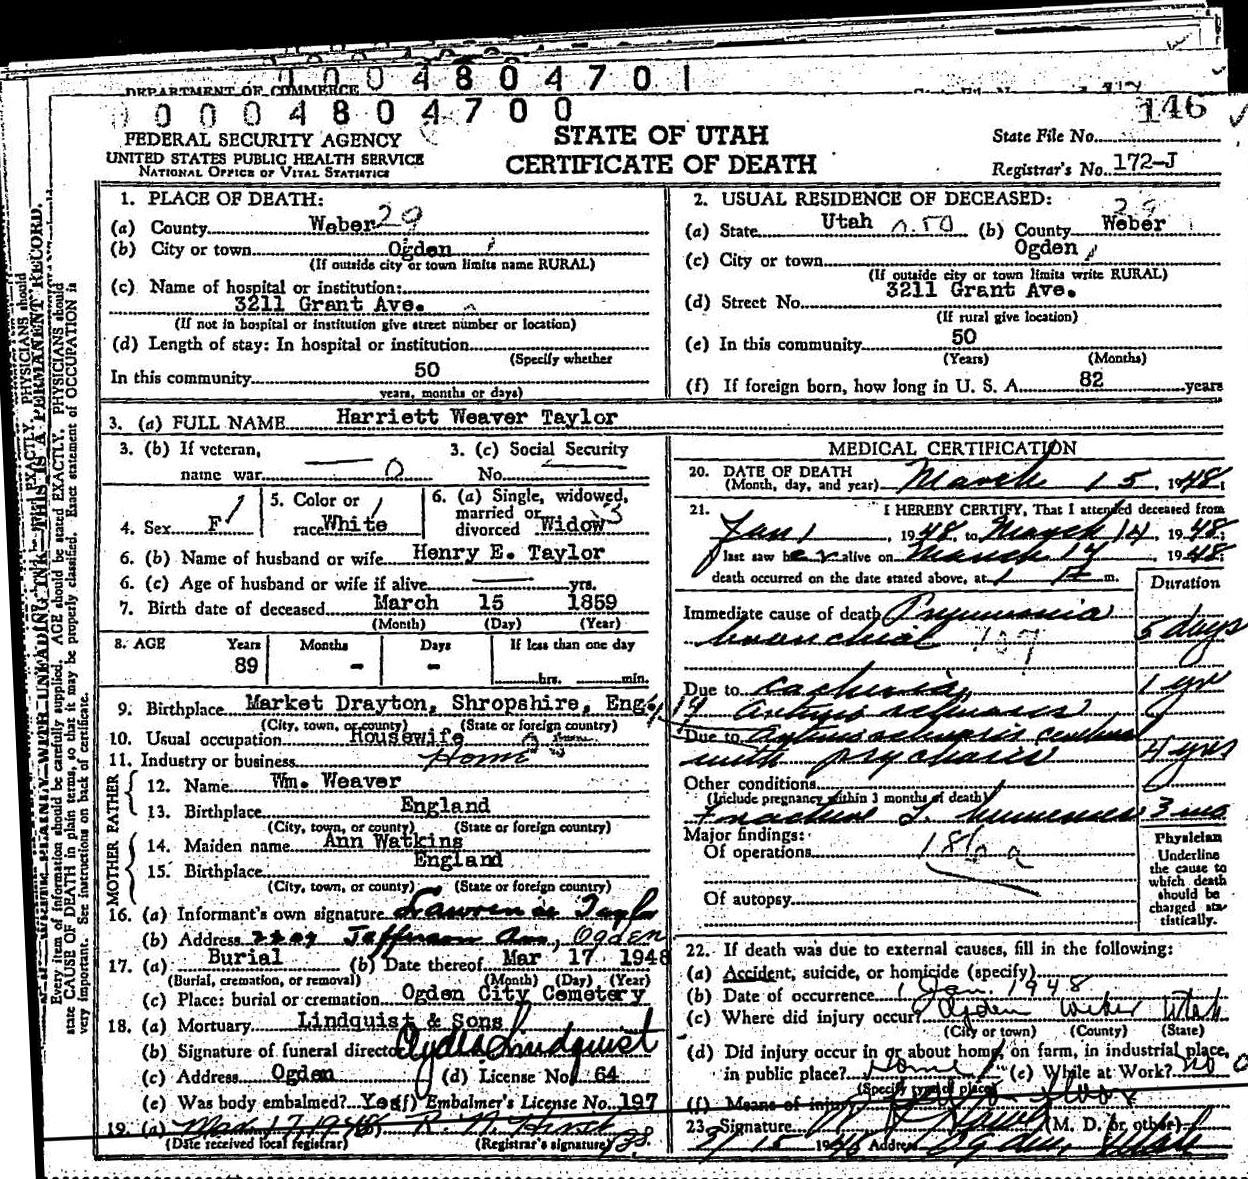 1 0 0 4 8 0 4 7 0 1
DEPARTMENT OF COMMERCE
0 0 0 4 8 0 4 7 0 0
146
FEDERAL SECURITY AGENCY
UNITED STATES PUBLIC HEALTH SERVICE
NATIONAL OFFICE OF VITAL STATISTICS
STATE OF UTAH
CERTIFICATE OF DEATH
State File No.
Registrar's No. 172-J
1. PLACE OF DEATH:
(a) County Weber 29
(b) City or town Ogden
(If outside city or town limits name RURAL)
(c) Name of hospital or institution:
3211 Grant Ave.
(If not in hospital or institution give street number or location)
(d) Length of stay: In hospital or institution
(Specify whether
In this community 50
years, months or days)
2. USUAL RESIDENCE OF DECEASED:
(a) State Utah (b) County Weber 29
(c) City or town Ogden
(If outside city or town limits write RURAL)
(d) Street No. 3211 Grant Ave.
(If rural give location)
(e) In this community 50
(Years) (Months)
(f) If foreign born, how long in U. S. A. 82 years
3. (a) FULL NAME Harriett Weaver Taylor
3. (b) If veteran, 3. (c) Social Security
name war No.
4. Sex F 5. Color or race White 6. (a) Single, widowed, married or divorced Widow 3
6. (b) Name of husband or wife Henry E. Taylor
6. (c) Age of husband or wife if alive yrs.
7. Birth date of deceased March 15 1859
(Month) (Day) (Year)
8. AGE Years Months Days If less than one day
89 - - hrs. min.
9. Birthplace Market Drayton, Shropshire, Eng.
(City, town, or county) (State or foreign country)
10. Usual occupation Housewife
11. Industry or business Home
FATHER
12. Name Wm. Weaver
13. Birthplace England
(City, town, or county) (State or foreign country)
MOTHER
14. Maiden name Ann Watkins
15. Birthplace England
(City, town, or county) (State or foreign country)
16. (a) Informant's own signature Lawrence Taylor
(b) Address Jefferson Ave, Ogden
17. (a) Burial (b) Date thereof Mar 17 1948
(Burial, cremation, or removal) (Month) (Day) (Year)
(c) Place: burial or cremation Ogden City Cemetery
18. (a) Mortuary Lindquist & Sons
(b) Signature of funeral director Clyde Lindquist
(c) Address Ogden (d) License No. 64
(e) Was body embalmed? Yes (f) Embalmer's License No. 197
19. (a) Mar 17, 1948
(Date received local registrar) (Registrar's signature)
MEDICAL CERTIFICATION
20. DATE OF DEATH
(Month, day, and year) March 15, 1948;
21. I HEREBY CERTIFY, That I attended deceased from
Jan 1, 1948, to March 14, 1948;
I last saw her alive on March 14 1948;
death occurred on the date stated above, at m.
Duration
Immediate cause of death Pneumonia
bronchial 107 5 days
Due to cachexia, 1 yr
arterio sclerosis
Due to arteriosclerosis cerebral
with psychosis 4 yrs
Other conditions
(Include pregnancy within 3 months of death)
Fracture 3 mo
Major findings:
Of operations 186 a
Of autopsy
Physician
Underline
the cause to
which death
should be
charged sta-
tistically.
22. If death was due to external causes, fill in the following:
(a) Accident, suicide, or homicide (specify)
(b) Date of occurrence 1 Jan. 1948
(c) Where did injury occur? Ogden Weber Utah
(City or town) (County) (State)
(d) Did injury occur in or about home, on farm, in industrial place,
in public place? Home (e) While at Work? no
(Specify type of place)
(f) Means of injury floor
23. Signature (M. D. or other)
15 1948 Address Ogden, Utah
Every item of information should be carefully supplied. AGE should be stated EXACTLY. PHYSICIANS should
state CAUSE OF DEATH in plain terms, so that it may be properly classified. Exact statement of OCCUPATION is
very important. See instructions on back of certificate.